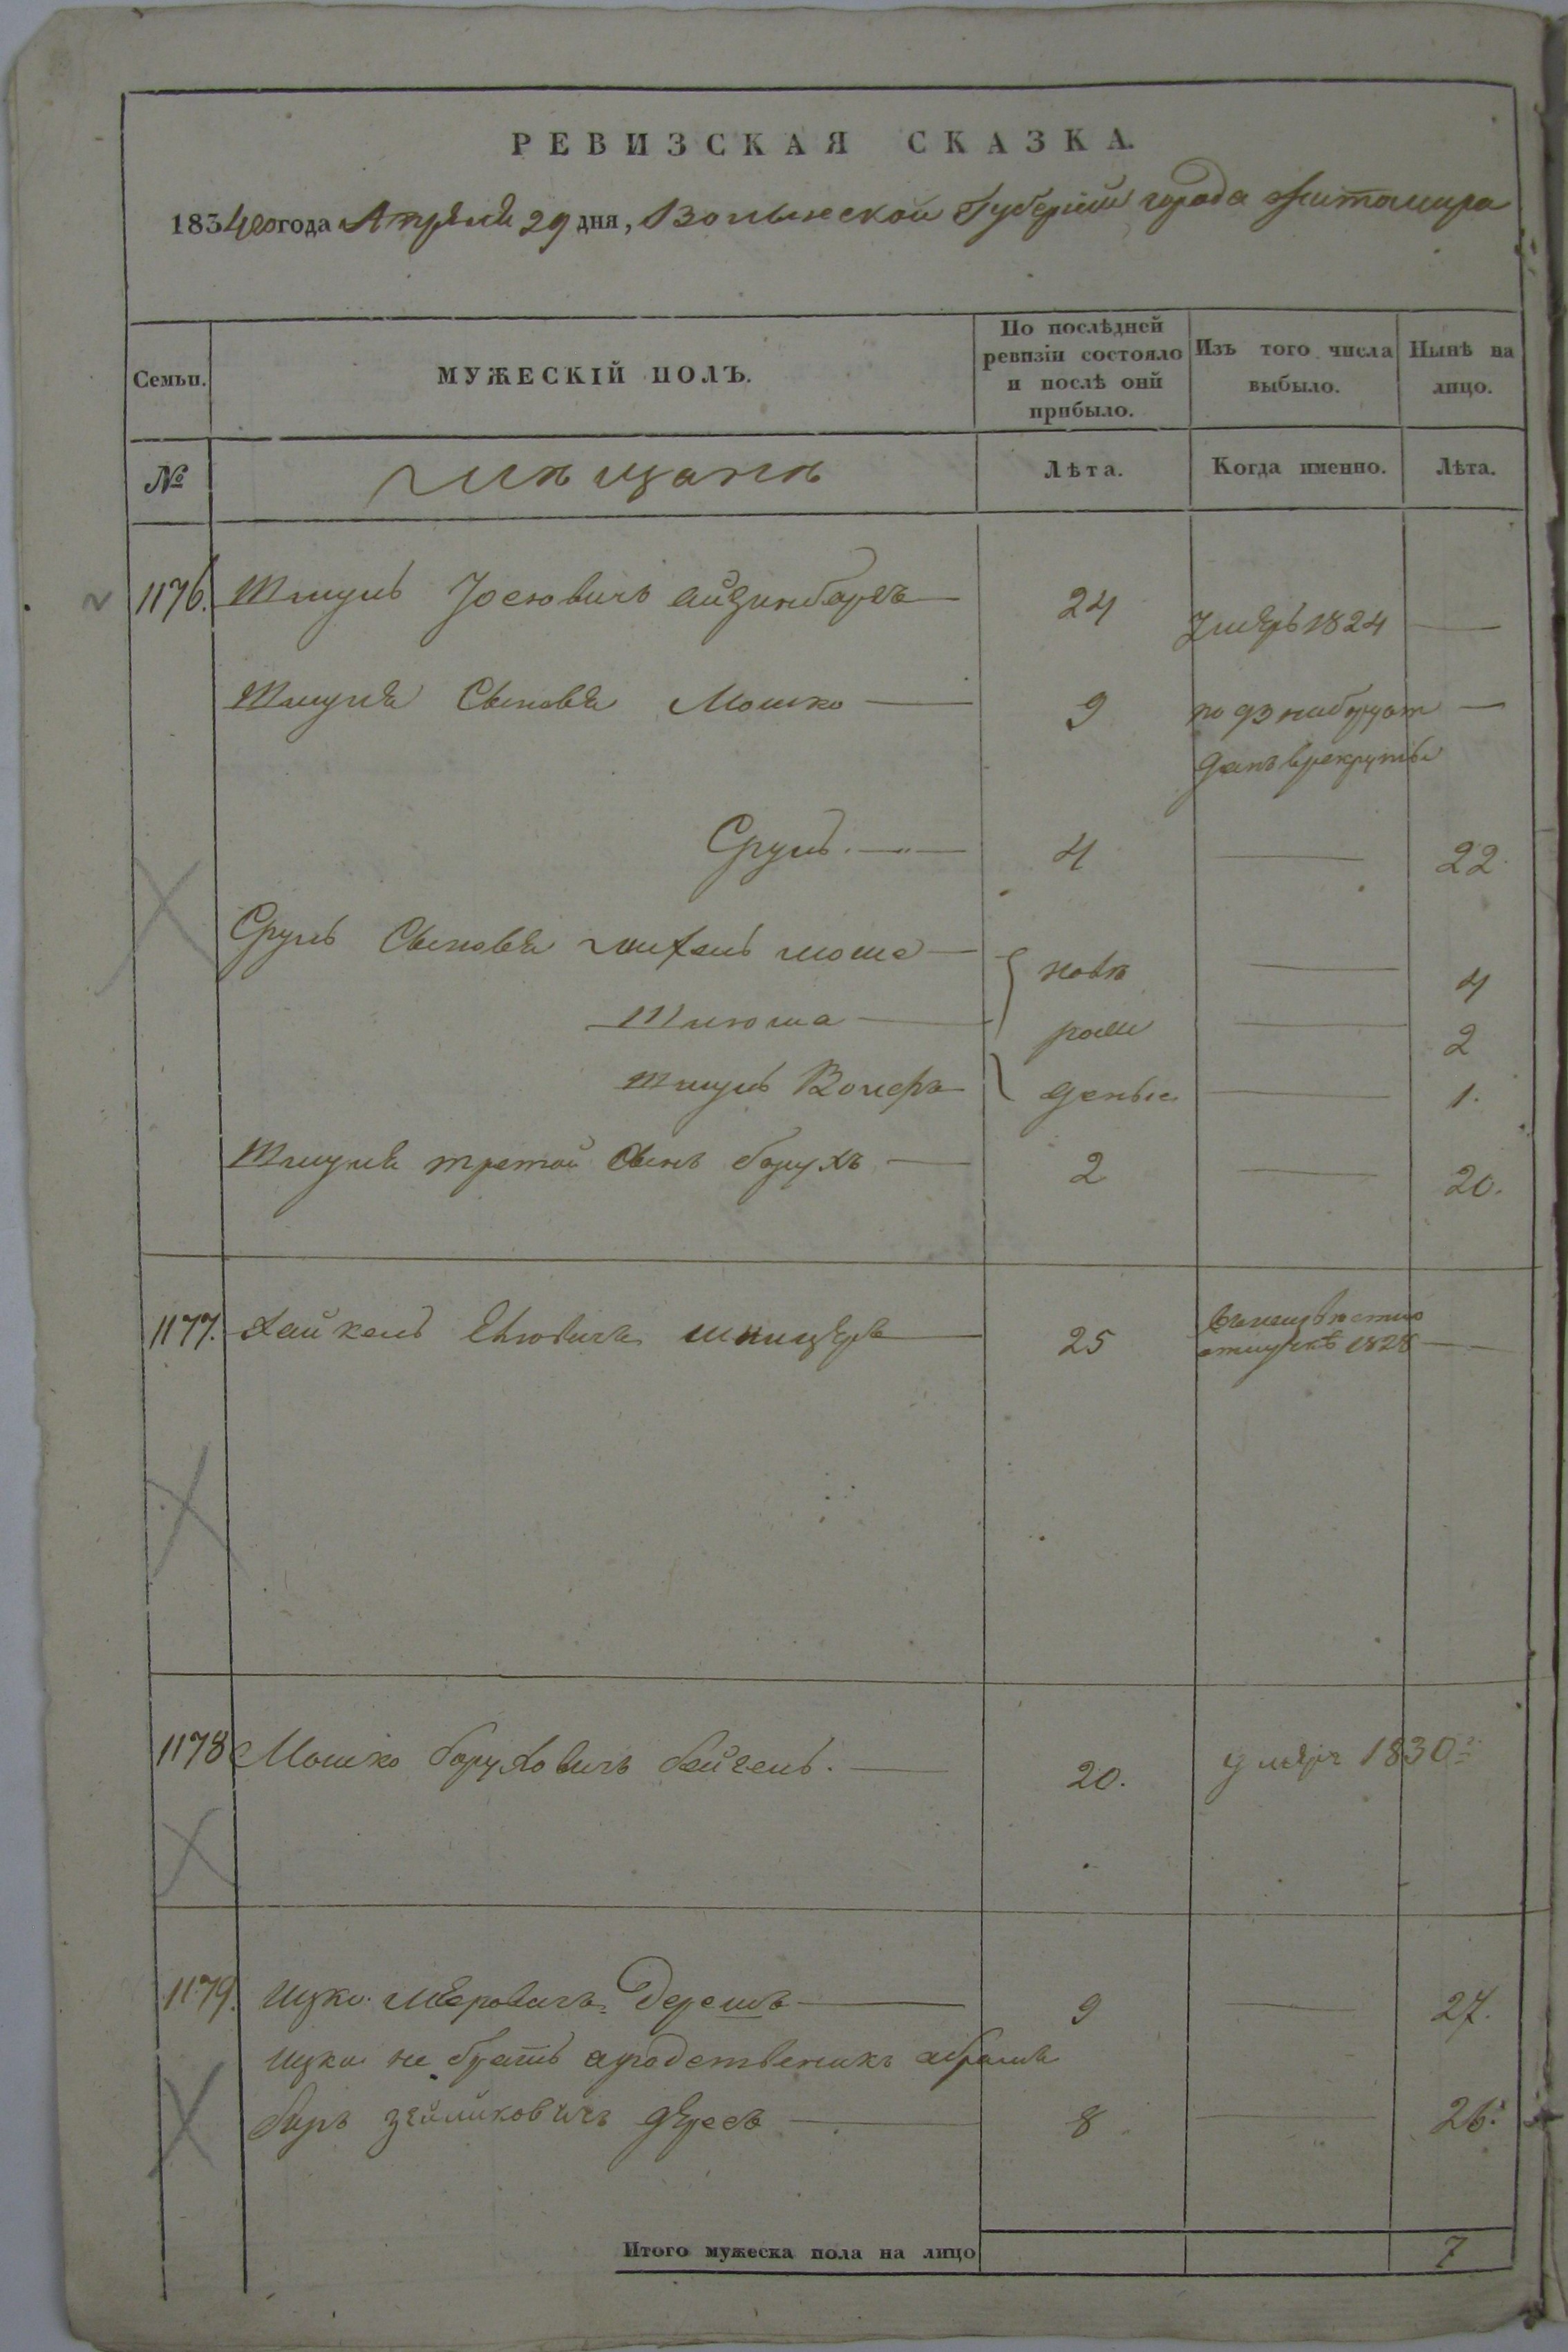 РЕВИЗСКАЯ СКАЗКА.
1834го года Апреля 29 дня, Волынской Губернии города Житомира
Семьи.
МУЖЕСКІЙ ПОЛЪ.
По послѣдней ревизіи состояло и послѣ оній прибыло.
Изъ того числа выбыло.
Нынѣ на лицо.
№
Мѣщанѣ
Лѣта.
Когда именно.
Лѣта.
1176. Шмуль Іосіовичъ Айзинбаргъ 24 Умеръ 1824
Шмуля Сыновья Мошко 9 по 93 набору от
данъ в рекруты
Сруль 4 22
Сруль Сыновья Михель моше новѣ 4
Шліома рож 2
Шмуль Волефъ деные 1.
Шмуля третой Сынъ борухъ 2 20.
1177. Хайкель шпицеръ 25
отлучкѣ 1828
1178 Мошко боруховичъ бейгель. 20. умеръ 1830
1179. Ицко Меровичъ Дерешъ 9 27.
Ицки не братъ а родственикъ абрамъ
беръ зейликовичъ 8 26.
Итого мужеска пола на лицо 7